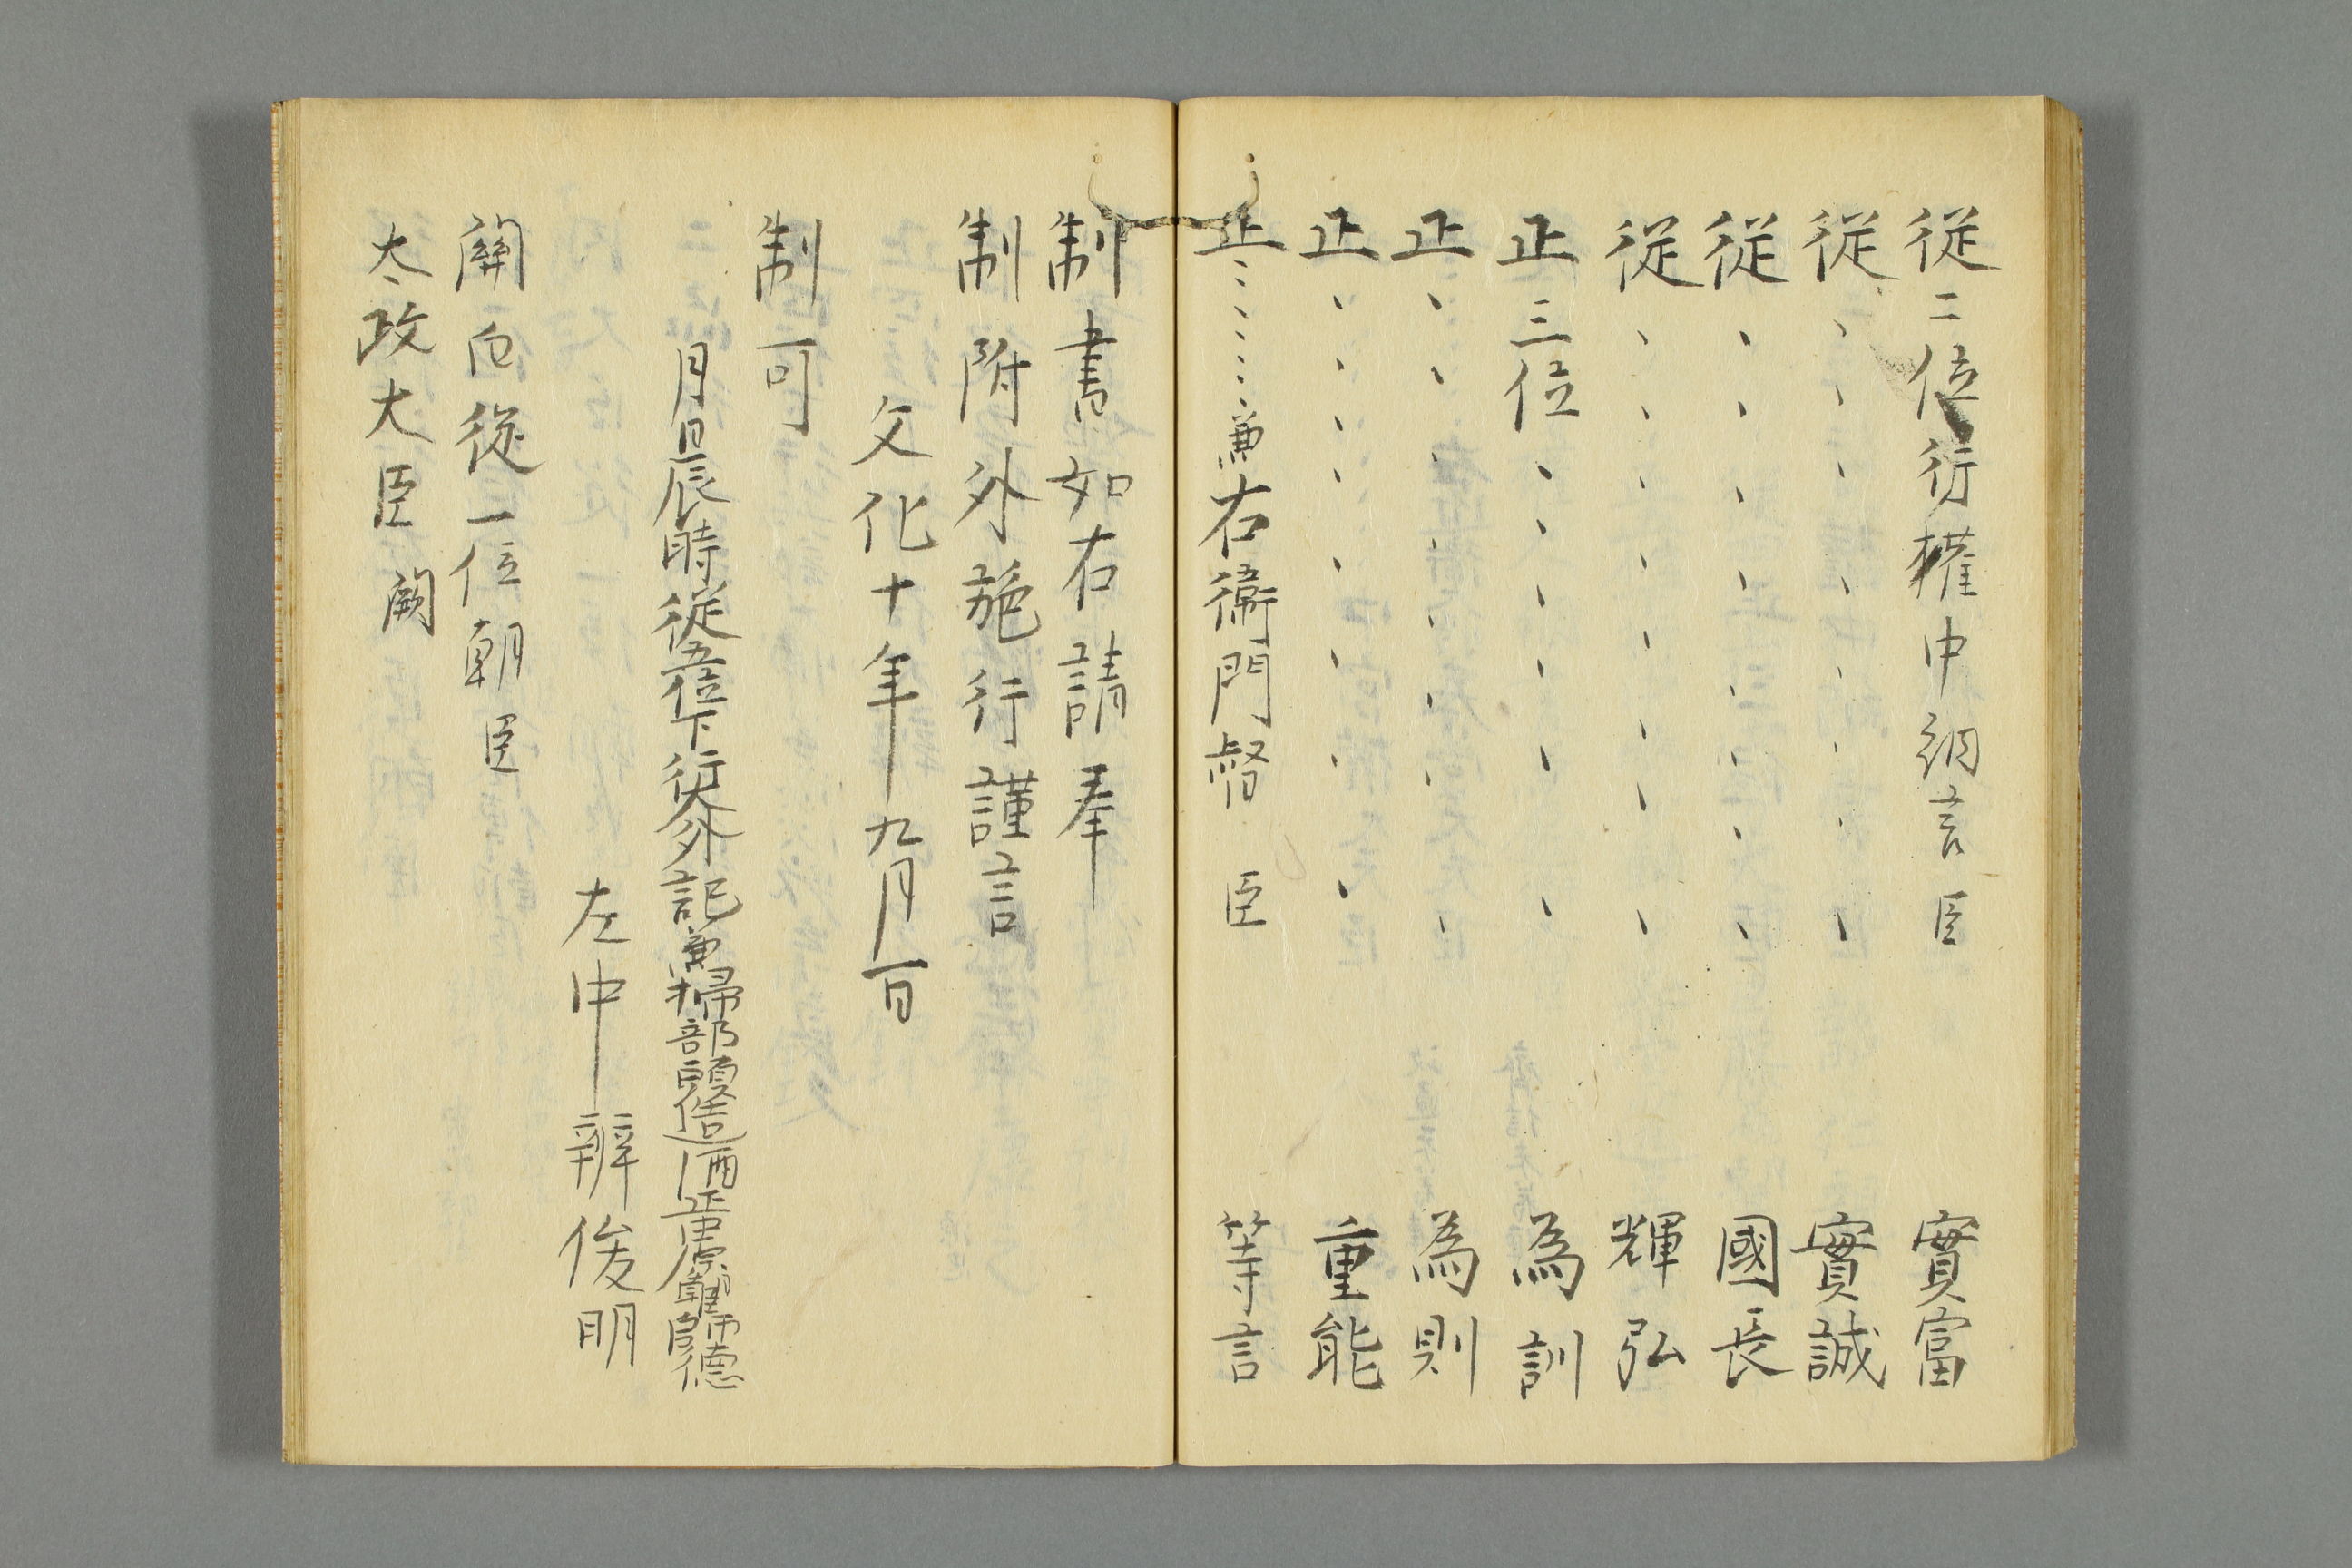 従二位行權中納言臣 實富
従、、、、、、、、 實誠
従、、、、、、、、 國長
従、、、、、、、、 輝弘
正三位、、、、、、 為訓
正、、、、、、、、 為則
正、、、、、、、、 重能
正、、、、、、兼右衞門督 臣 等言
制書如右請奉
制附外施行謹言
文化十年九月一日
制可
月日辰時従五位下行大外記兼掃部頭造酒正中原朝臣師德
左中辨俊明
關白従一位朝臣
太政大臣 闕